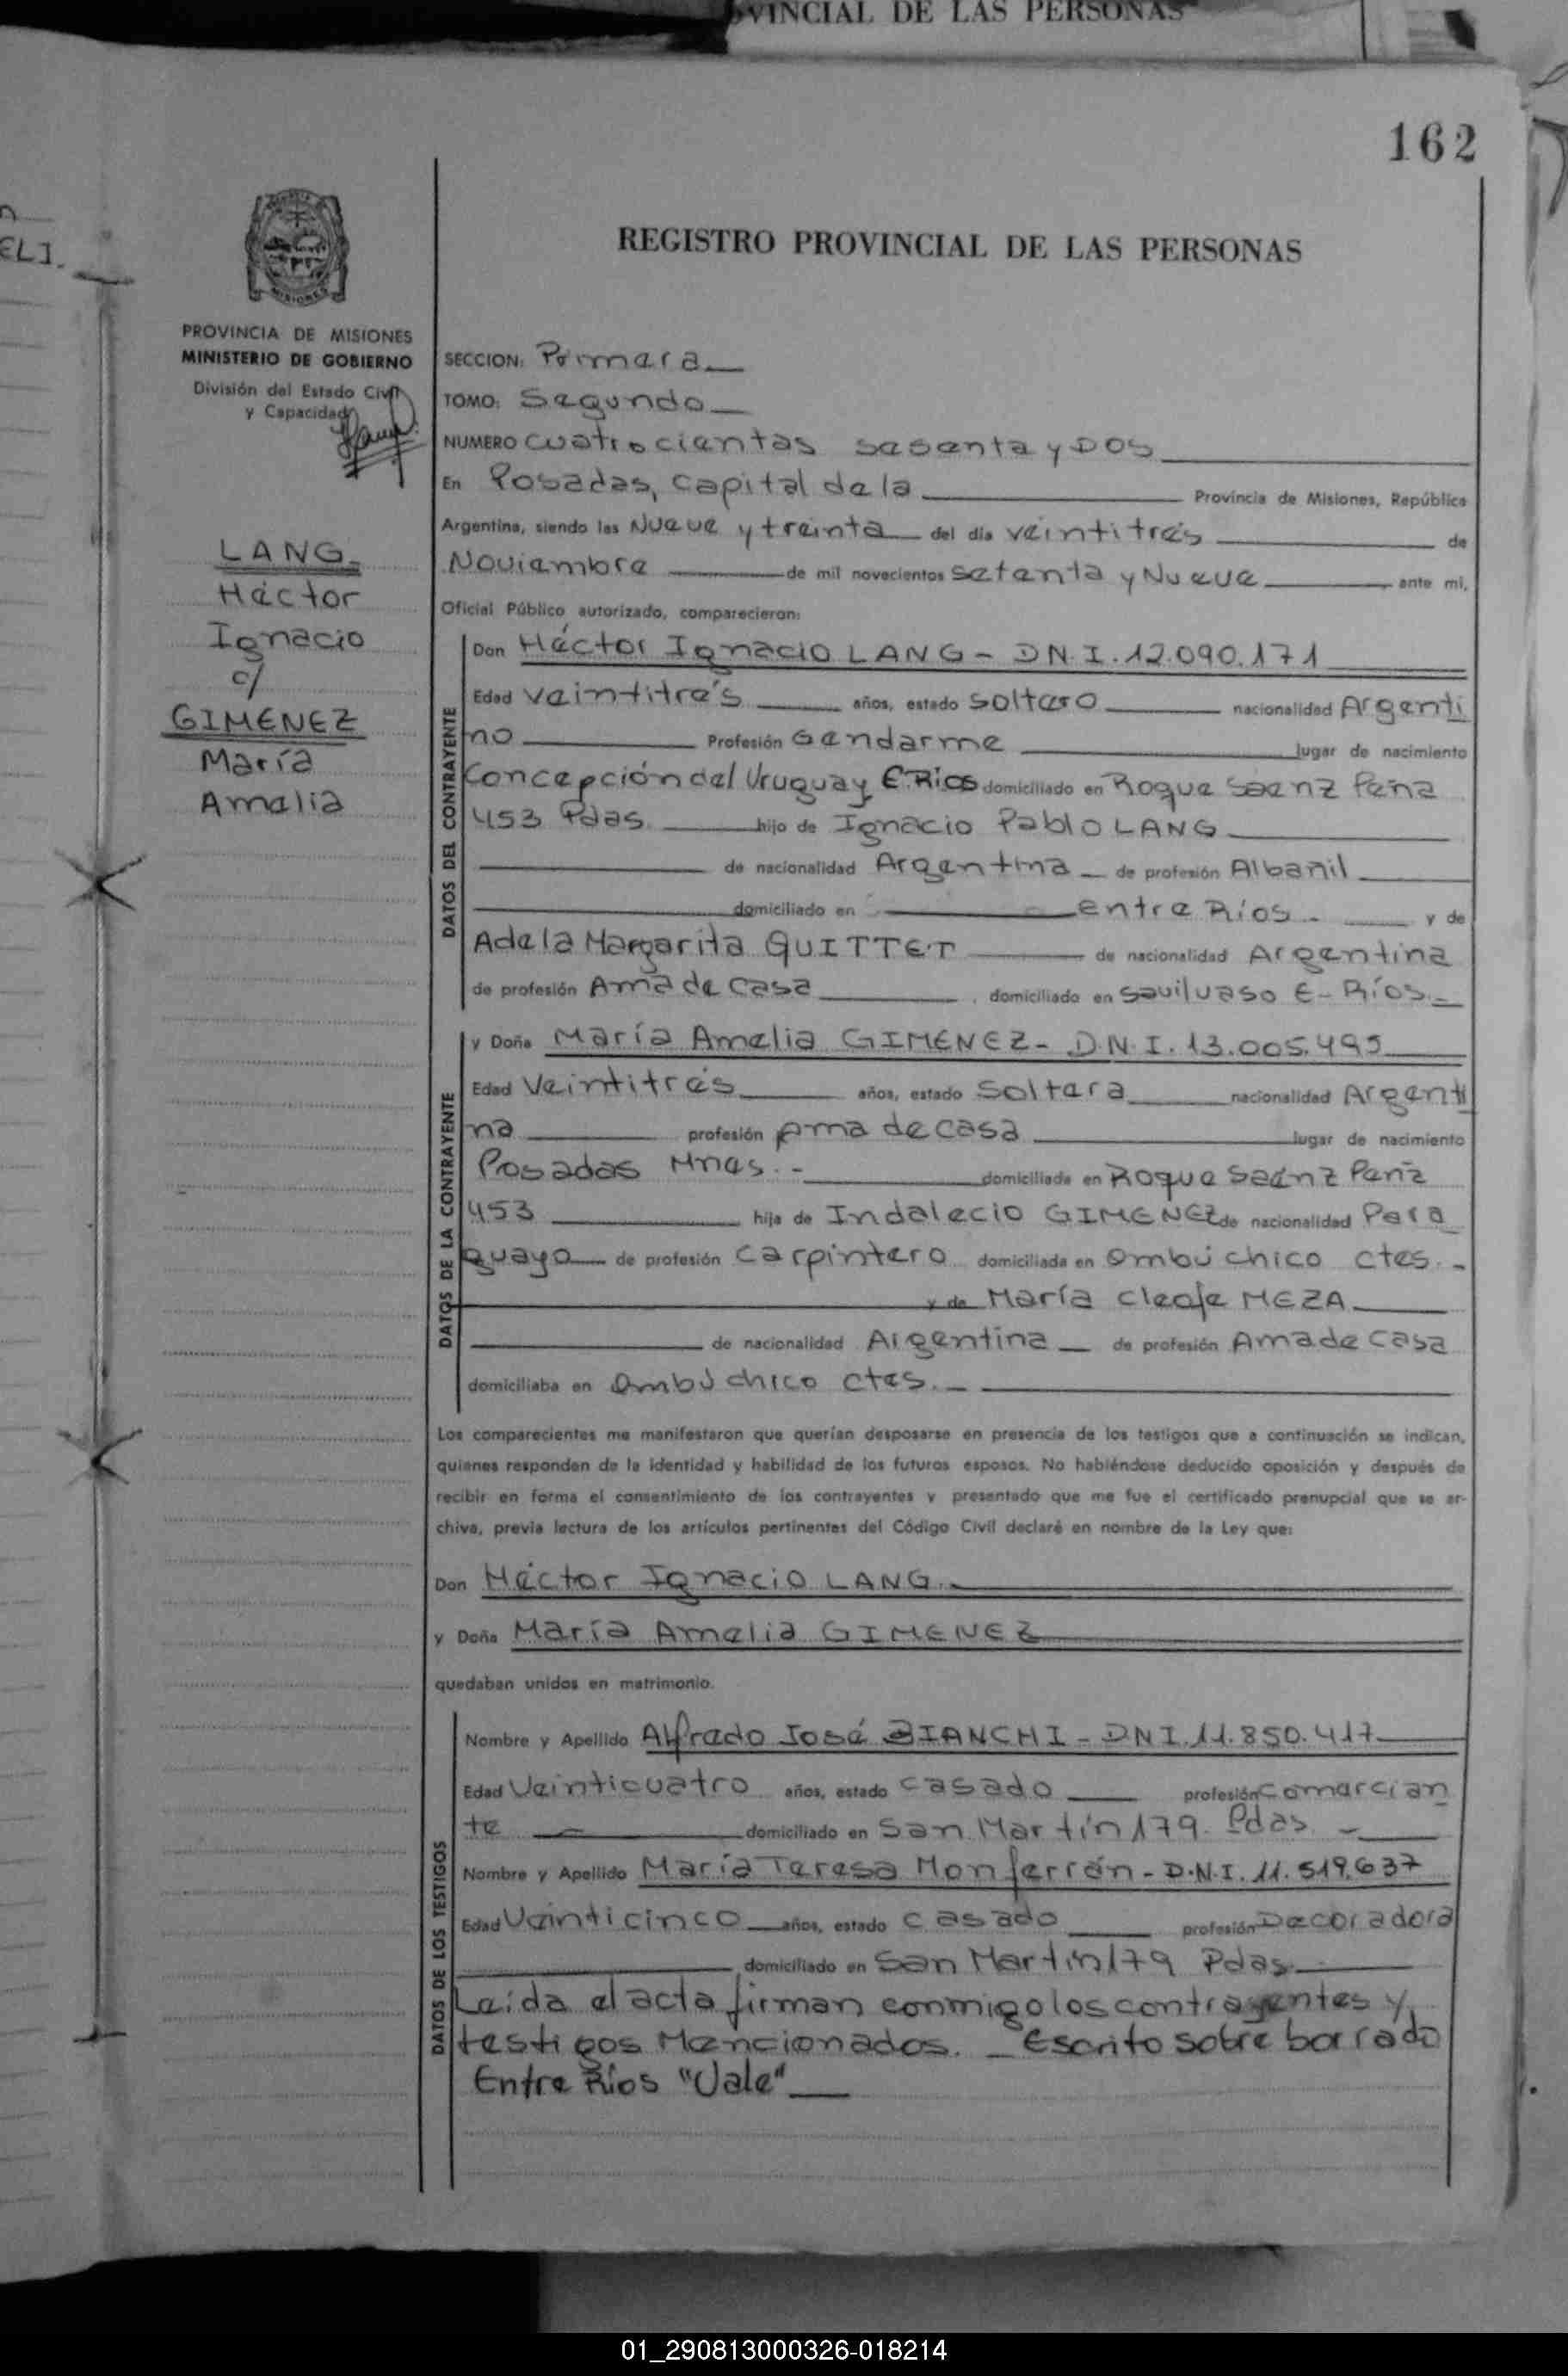 VINCIAL DE LAS PERSONAS
162
ELI.
REGISTRO PROVINCIAL DE LAS PERSONAS
MISIONES
PROVINCIA DE MISIONES
MINISTERIO DE GOBIERNO
División del Estado Civil
y Capacidad
LANG
Héctor
Ignacio
c/
GIMENEZ
María
Amalia
SECCION: Primera
TOMO: Segundo
NUMERO cuatrocientas sesenta y DOS
En Posadas, capital de la Provincia de Misiones, República
Argentina, siendo las Nueve y treinta del día veintitrés de
Noviembre de mil novecientos setenta y Nueve, ante mi,
Oficial Público autorizado, comparecieron:
DATOS DEL CONTRAYENTE
Don Héctor Ignacio LANG - DN.I. 12.090.171
Edad veintitrés años, estado soltero nacionalidad Argenti
no Profesión Gendarme lugar de nacimiento
Concepción del Uruguay E.Ríos domiciliado en Roque Saenz Peña
453 Pdas. hijo de Ignacio Pablo LANG
de nacionalidad Argentina de profesión Albañil
domiciliado en entre Ríos - y de
Adela Margarita QUITTET de nacionalidad Argentina
de profesión Ama de casa, domiciliado en E- Ríos.-
DATOS DE LA CONTRAYENTE
y Doña María Amelia GIMENEZ - D.N.I. 13.005.495
Edad Veintitrés años, estado Soltera nacionalidad Argenti
na profesión Ama de casa lugar de nacimiento
Posadas Mnes.- domiciliada en Roque Saénz Peña
453 hija de Indalecio GIMENEZ de nacionalidad Para
guayo de profesión carpintero domiciliada en Ombú chico ctes.-
y de María Cleofe MEZA
de nacionalidad Argentina de profesión Ama de casa
domiciliaba en Ombú chico ctes.-
Los comparecientes me manifestaron que querían desposarse en presencia de los testigos que a continuación se indican,
quienes responden de la identidad y habilidad de los futuros esposos. No habiéndose deducido oposición y después de
recibir en forma el consentimiento de los contrayentes y presentado que me fue el certificado prenupcial que se ar-
chiva, previa lectura de los artículos pertinentes del Código Civil declaré en nombre de la Ley que:
Don Héctor Ignacio LANG.
y Doña María Amelia GIMENEZ
quedaban unidos en matrimonio.
DATOS DE LOS TESTIGOS
Nombre y Apellido Alfredo José BIANCHI - D.N.I. 11.850.417
Edad Veinticuatro años, estado casado profesión comercian
te domiciliado en San Martín 179. Pdas. -
Nombre y Apellido María Teresa Monferrán - D.N.I. 11.519.637
Edad Veinticinco años, estado casado profesión Decoradora
domiciliado en San Martín 179 Pdas.
Leída el acta firman conmigo los contrayentes y
testigos Mencionados. - Escrito sobre borrado
Entre Ríos "Vale"
01_290813000326-018214